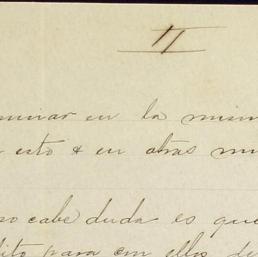 II
minar en la mism
esto & en otras mu
no cabe duda es que
dito para con ellos de